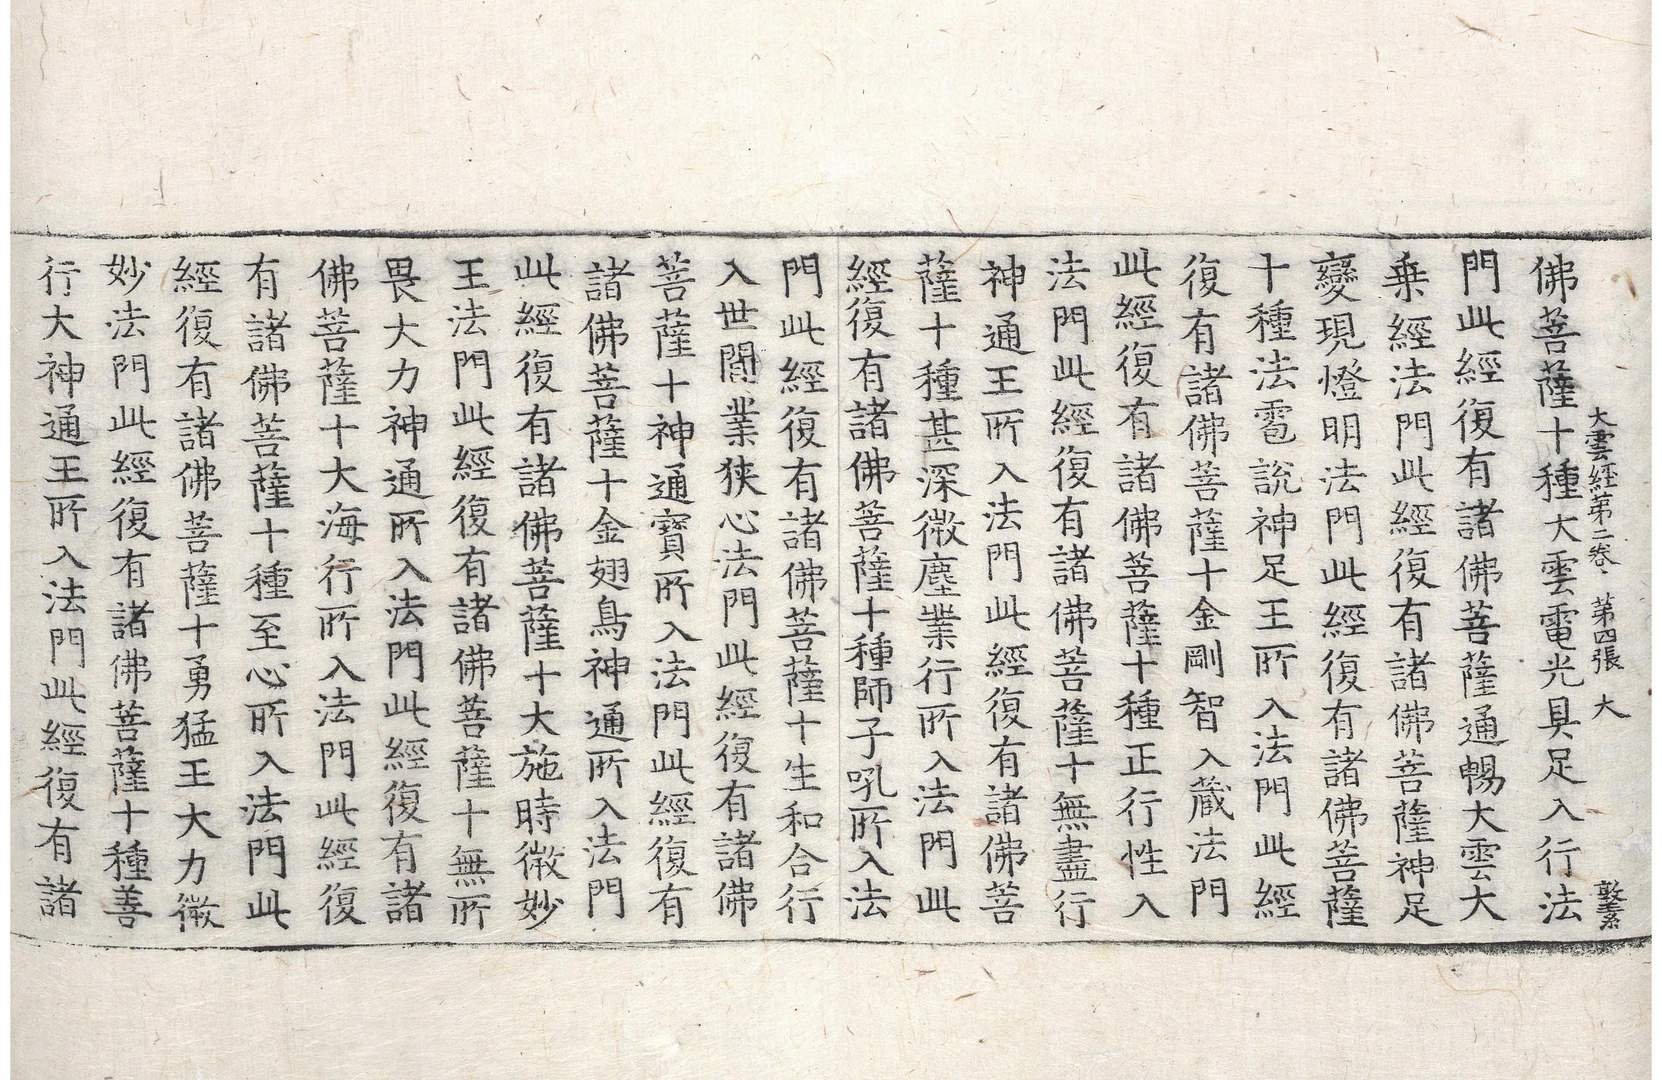 大雲經第二卷 第四張 大 敦素
佛菩薩十種大雲電光具足入行法
門此經復有諸佛菩薩通暢大雲大
乗經法門此經復有諸佛菩薩神足
變現燈明法門此經復有諸佛菩薩
十種法雹說神足王所入法門此經
復有諸佛菩薩十金剛智入蔵法門
此經復有諸佛菩薩十種正行性入
法門此經復有諸佛菩薩十無盡行
神通王所入法門此經復有諸佛菩
薩十種甚深微塵業行所入法門此
經復有諸佛菩薩十種師子吼所入法
門此經復有諸佛菩薩十生和合行
入世間業狹心法門此經復有諸佛
菩薩十神通寶所入法門此經復有
諸佛菩薩十金翅鳥神通所入法門
此經復有諸佛菩薩十大施時微妙
王法門此經復有諸佛菩薩十無所
畏大力神通所入法門此經復有諸
佛菩薩十大海行所入法門此經復
有諸佛菩薩十種至心所入法門此
經復有諸佛菩薩十勇猛王大力微
妙法門此經復有諸佛菩薩十種善
行大神通王所入法門此經復有諸